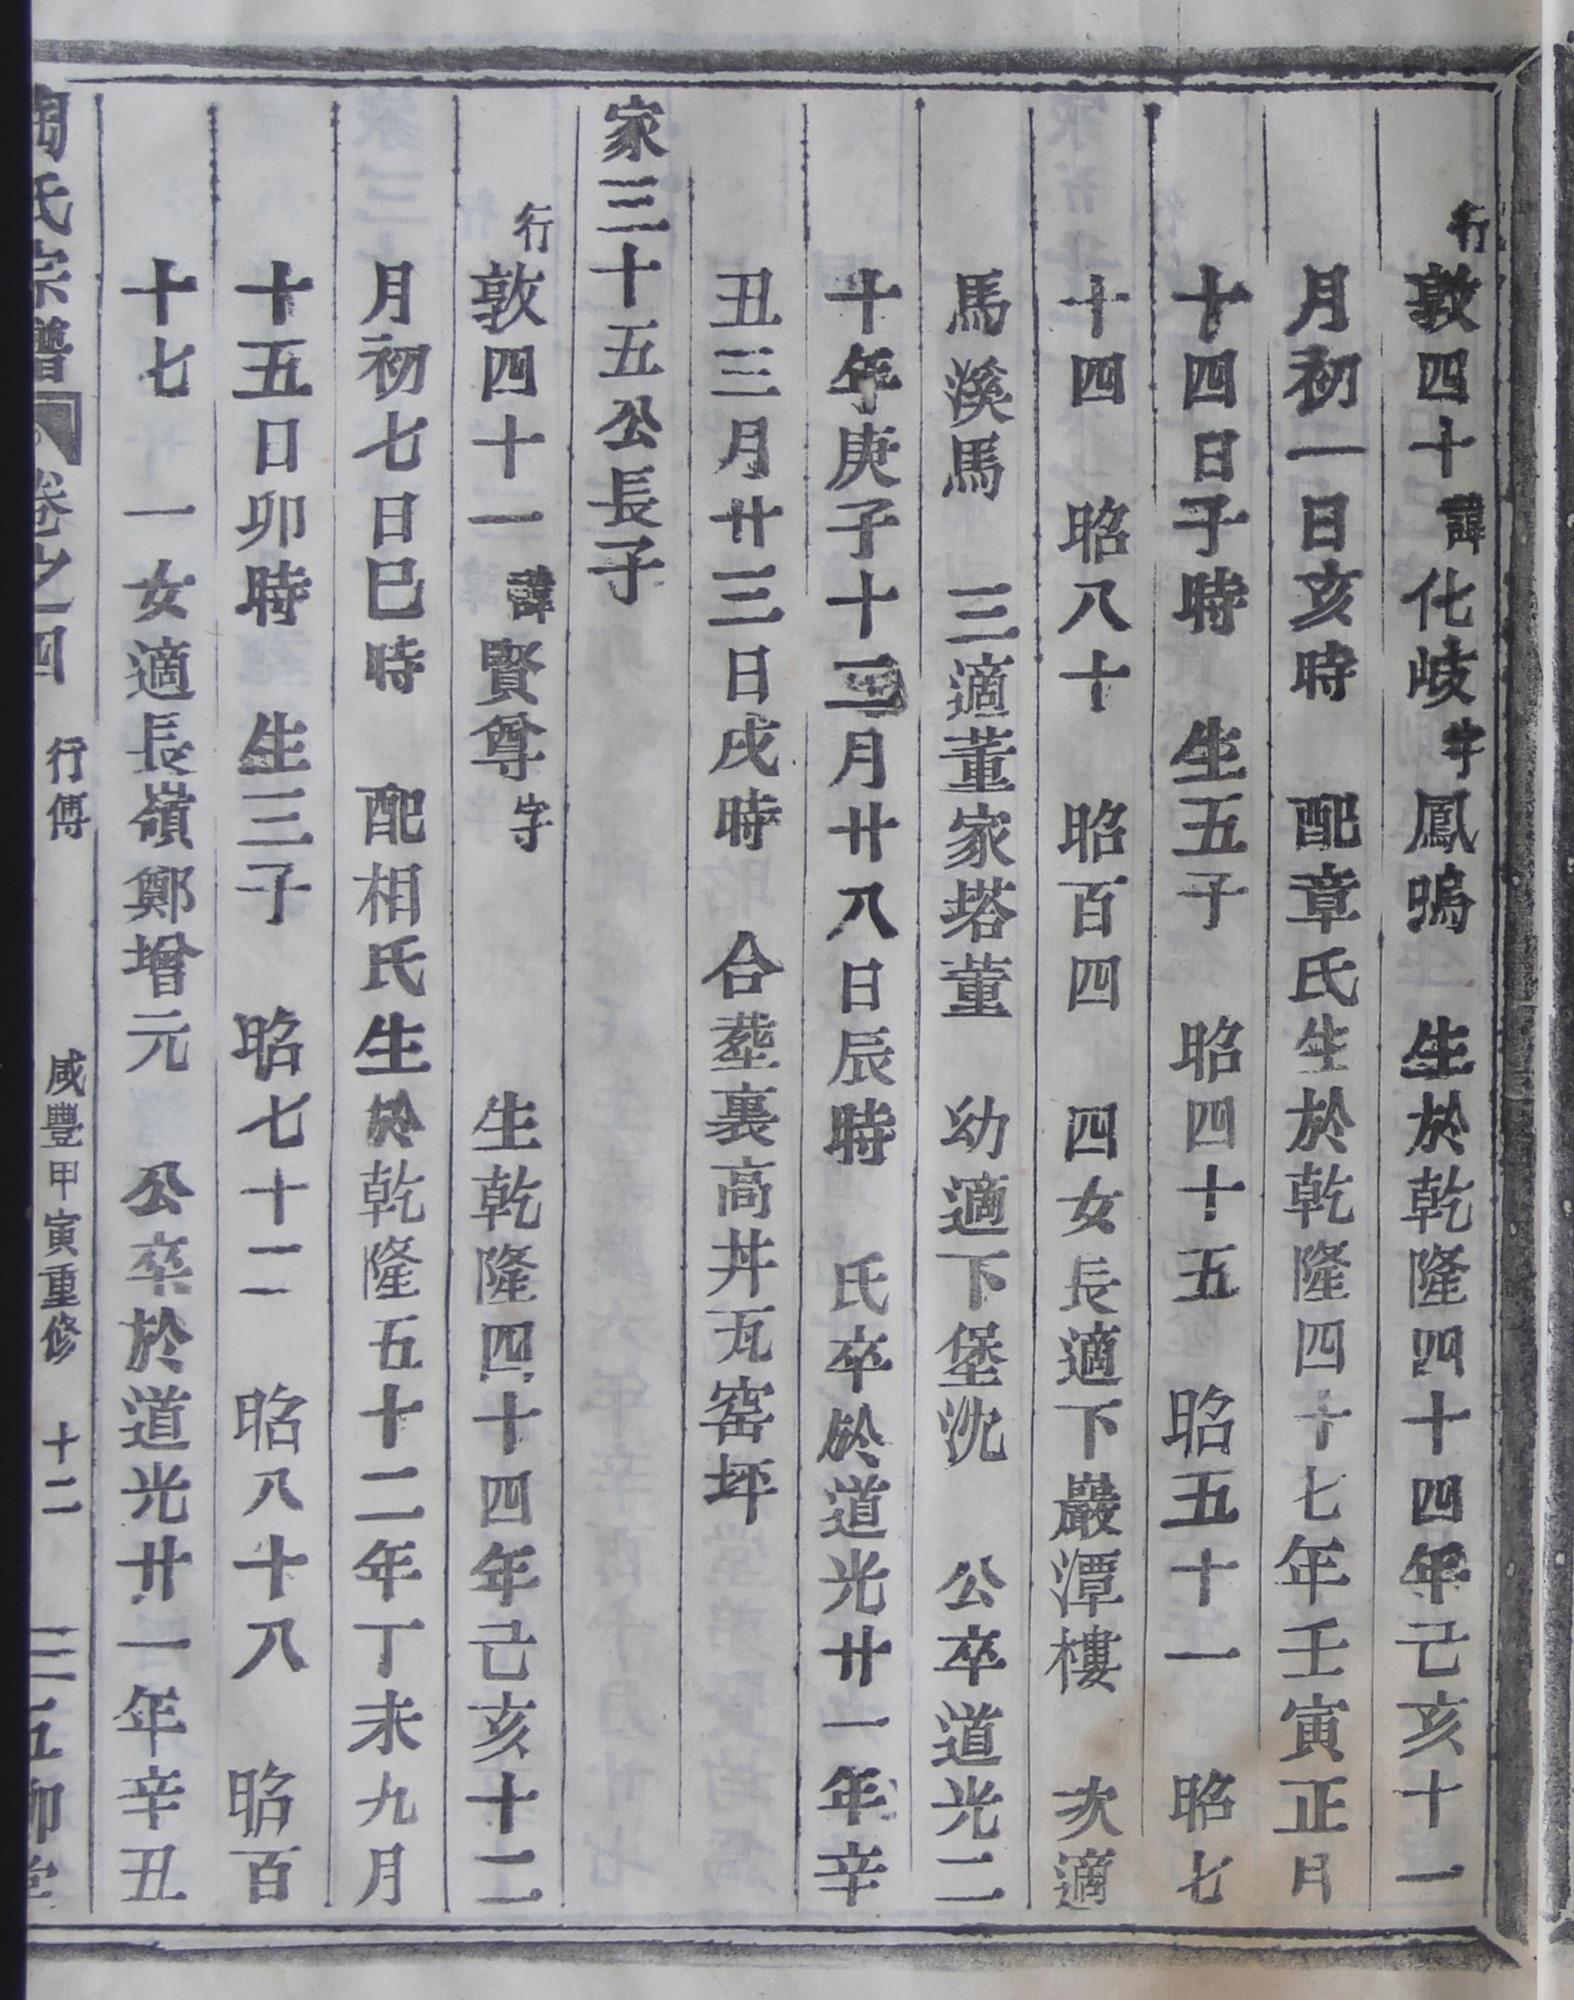 行敦四十諱化岐字鳳鳴 生於乾隆四十四年己亥十一
月初一日亥時 配章氏生於乾隆四十七年壬寅正月
十四日子時 生五子 昭四十五 昭五十一 昭七
十四 昭八十 昭百四 四女長適下嚴潭樓 次適
馬溪馬 三適董家塔董 幼適下堡沈 公卒道光二
十年庚子十二月廿八日辰時 氏卒於道光廿一年辛
丑三月廿三日戌時 合塟裏高丼瓦窑坪
家三十五公長子
行敦四十一諱賢尊字 生乾隆四十四年己亥十二
月初七日巳時 配相氏生於乾隆五十二年丁未九月
十五日卯時 生三子 昭七十二 昭八十八 昭百
十七 一女適長嶺鄭增元 公卒於道光廿一年辛丑
陶氏宗譜 卷之四 行傅 咸豐甲寅重修 十二 五柳堂